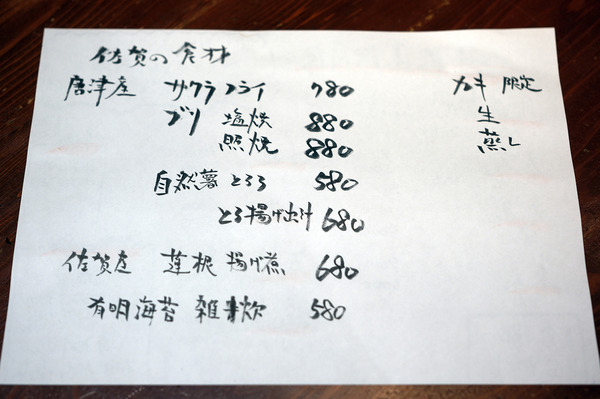 佐賀の食材
唐津産 サワラ フライ 780
ブリ 塩焼 880
照焼 880
自然薯 とろろ 580
とろろ揚げ出汁 680
佐賀産 蓮根 揚げ煮 680
有明海苔 雑炊 580
カキ 限定
生
蒸し